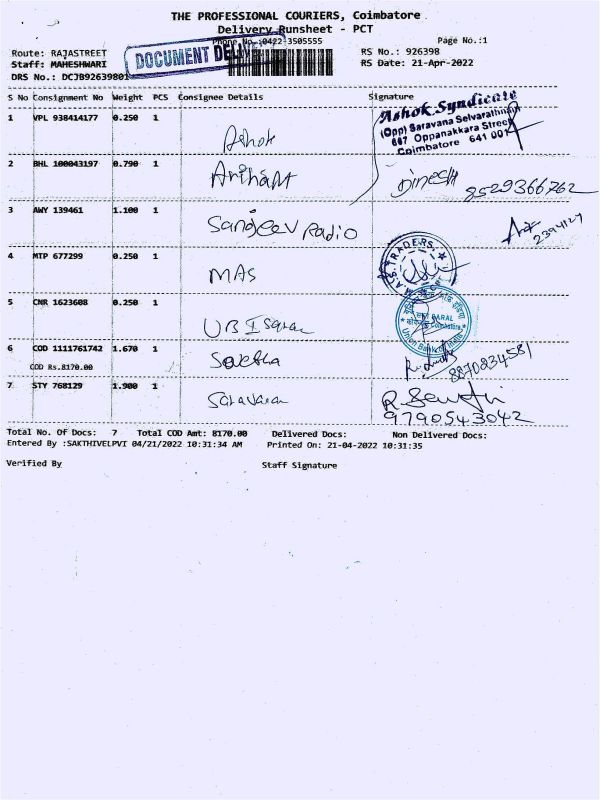 THE PROFESSIONAL COURIERS, Coimbatore
Delivery Runsheet - PCT
Phone No.:0422-3505555
Page No.:1
Route: RAJASTREET
RS No.: 926398
Staff: MAHESHWARI
DOCUMENT
RS Date: 21-Apr-2022
DRS No.: DCJB92639801
S No Consignment No Weight PCS Consignee Details Signature
1 VPL 938414177 0.250 1 Ashok
Ashok Syndicate
(Opp) Saravana Selvarathnam
687 Oppanakkara Street
Coimbatore 641 001
2 BHL 100043197 0.790 1 Arihant Dinesh
8529366762
3 AWY 139461 1.100 1 Sandeev Radio
2394127
4 MTP 677299 0.250 1 MAS
M.A.S. TRADERS
5 CNR 1623608 0.250 1 UBI Saran
SARAL
Union Bank of India
6 COD 1111761742 1.670 1
COD Rs.8170.00
8870834581
7 STY 768129 1.900 1 Saravanan
9790543042
Total No. Of Docs: 7 Total COD Amt: 8170.00 Delivered Docs: Non Delivered Docs:
Entered By :SAKTHIVELPVI 04/21/2022 10:31:34 AM Printed On: 21-04-2022 10:31:35
Verified By Staff Signature